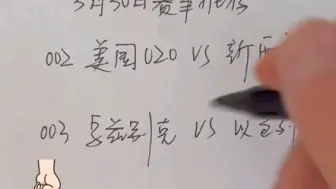 3月30日赛事推荐
002 美国U20 VS 新西
003 乌兹别克 VS 以色列